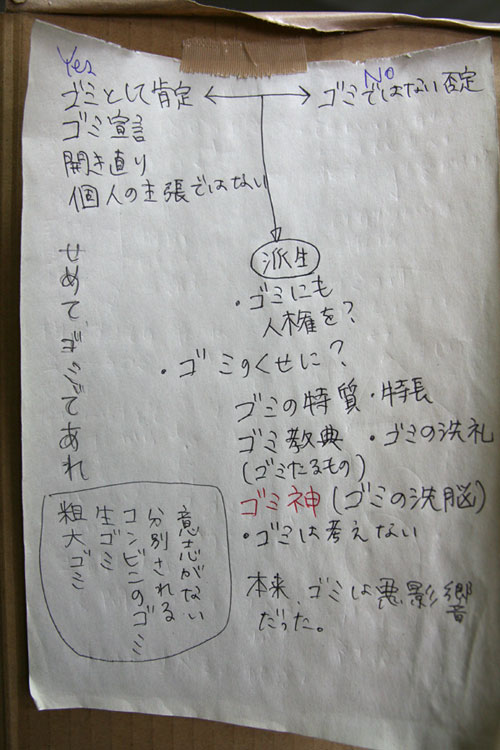 Yes
ゴミとして肯定 ←→ ゴミではない否定
No
ゴミ宣言
開き直り
個人の主張ではない
派生
・ゴミにも
人権を?
・ゴミのくせに?
ゴミの特質・特長
ゴミ教典 ・ゴミの洗礼
(ゴミたるもの)
ゴミ神(ゴミの洗脳)
・ゴミは考えない
本来、ゴミは悪影響
だった。
せめてゴミであれ
意志がない
分別される
コンビニのゴミ
生ゴミ
粗大ゴミ